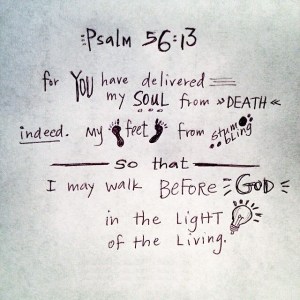 Psalm 56:13
for YOU have delivered
my SOUL from »DEATH«
indeed. My feet from stumbling
so that
I may walk BEFORE GOD
in the LigHT
of the Living.